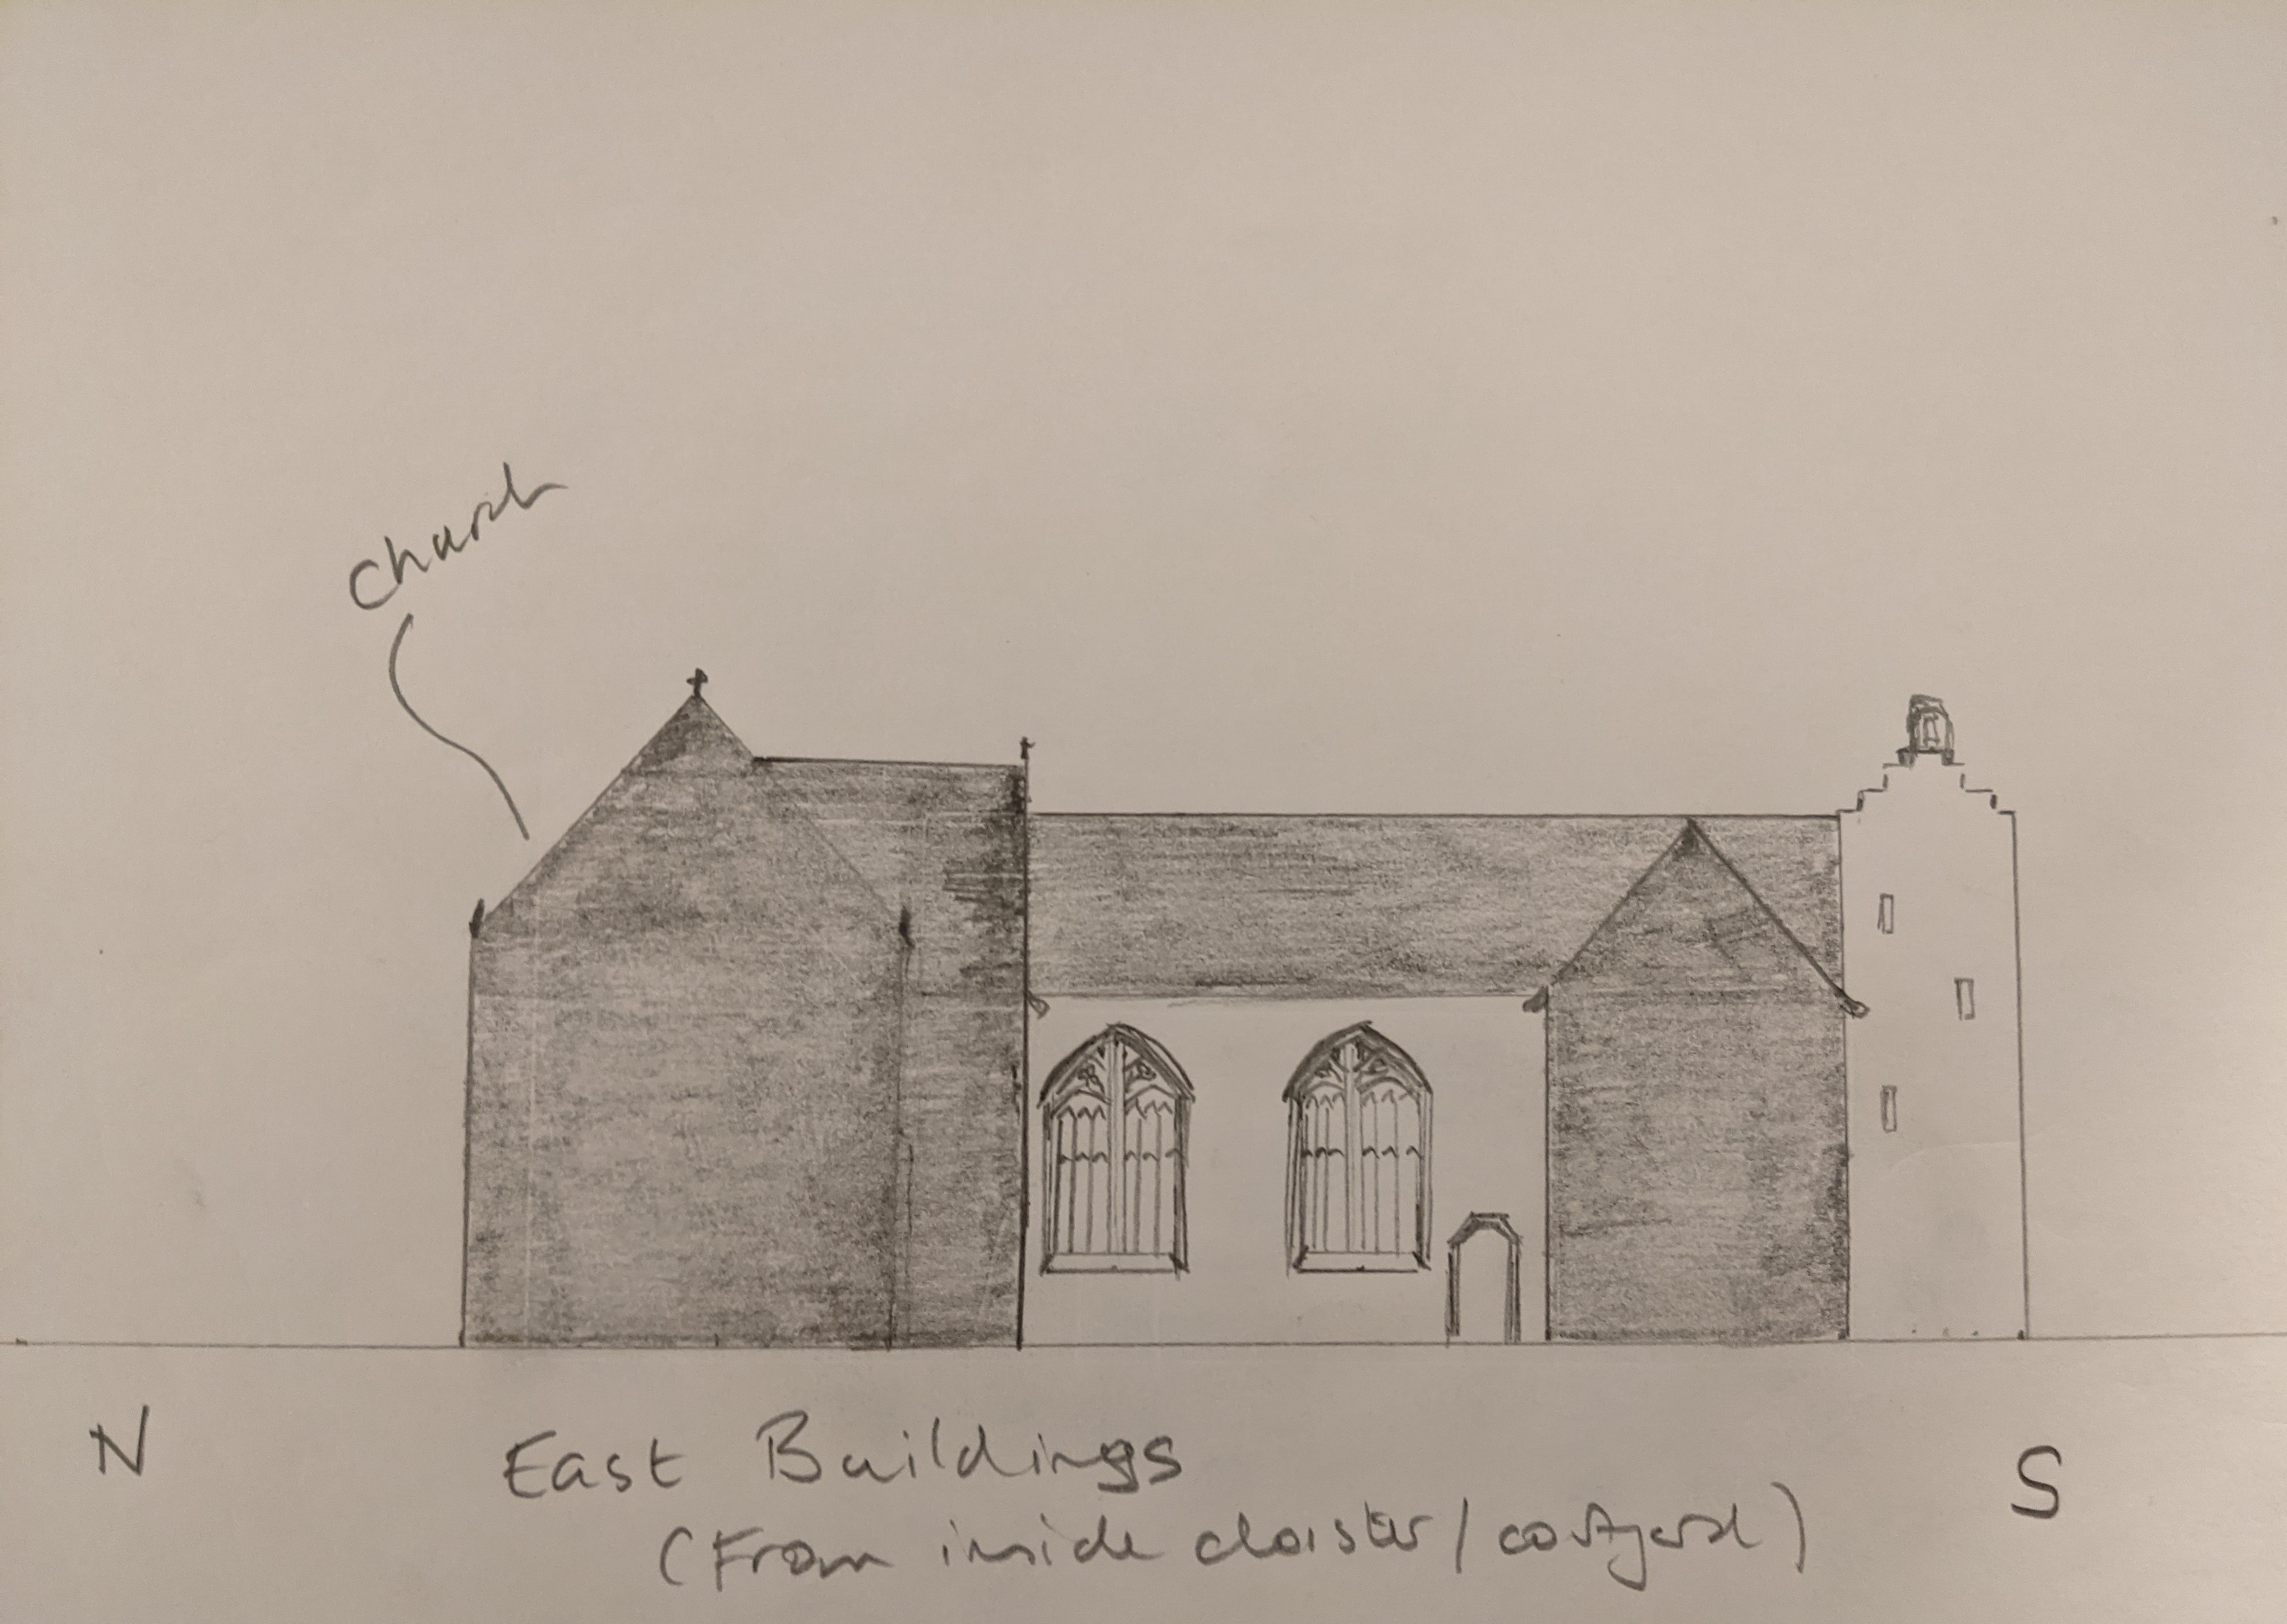 Church
N
East Buildings
S
(From inside cloister / cortyard)